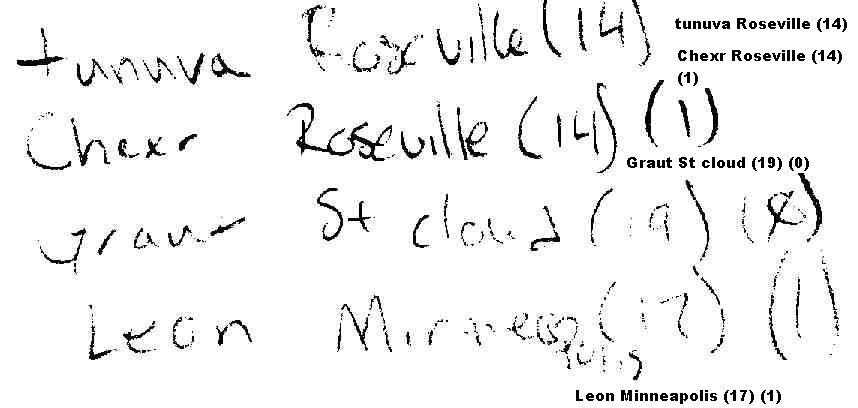 tunuva Roseville (14)
tunuva Roseville (14)
Chexr Roseville (14)
(1)
Chexr Roseville (14) (1)
Graut St cloud (19) (0)
St cloud (19)
Leon Minneapolis (17) (1)
Leon Minneapolis (17) (1)